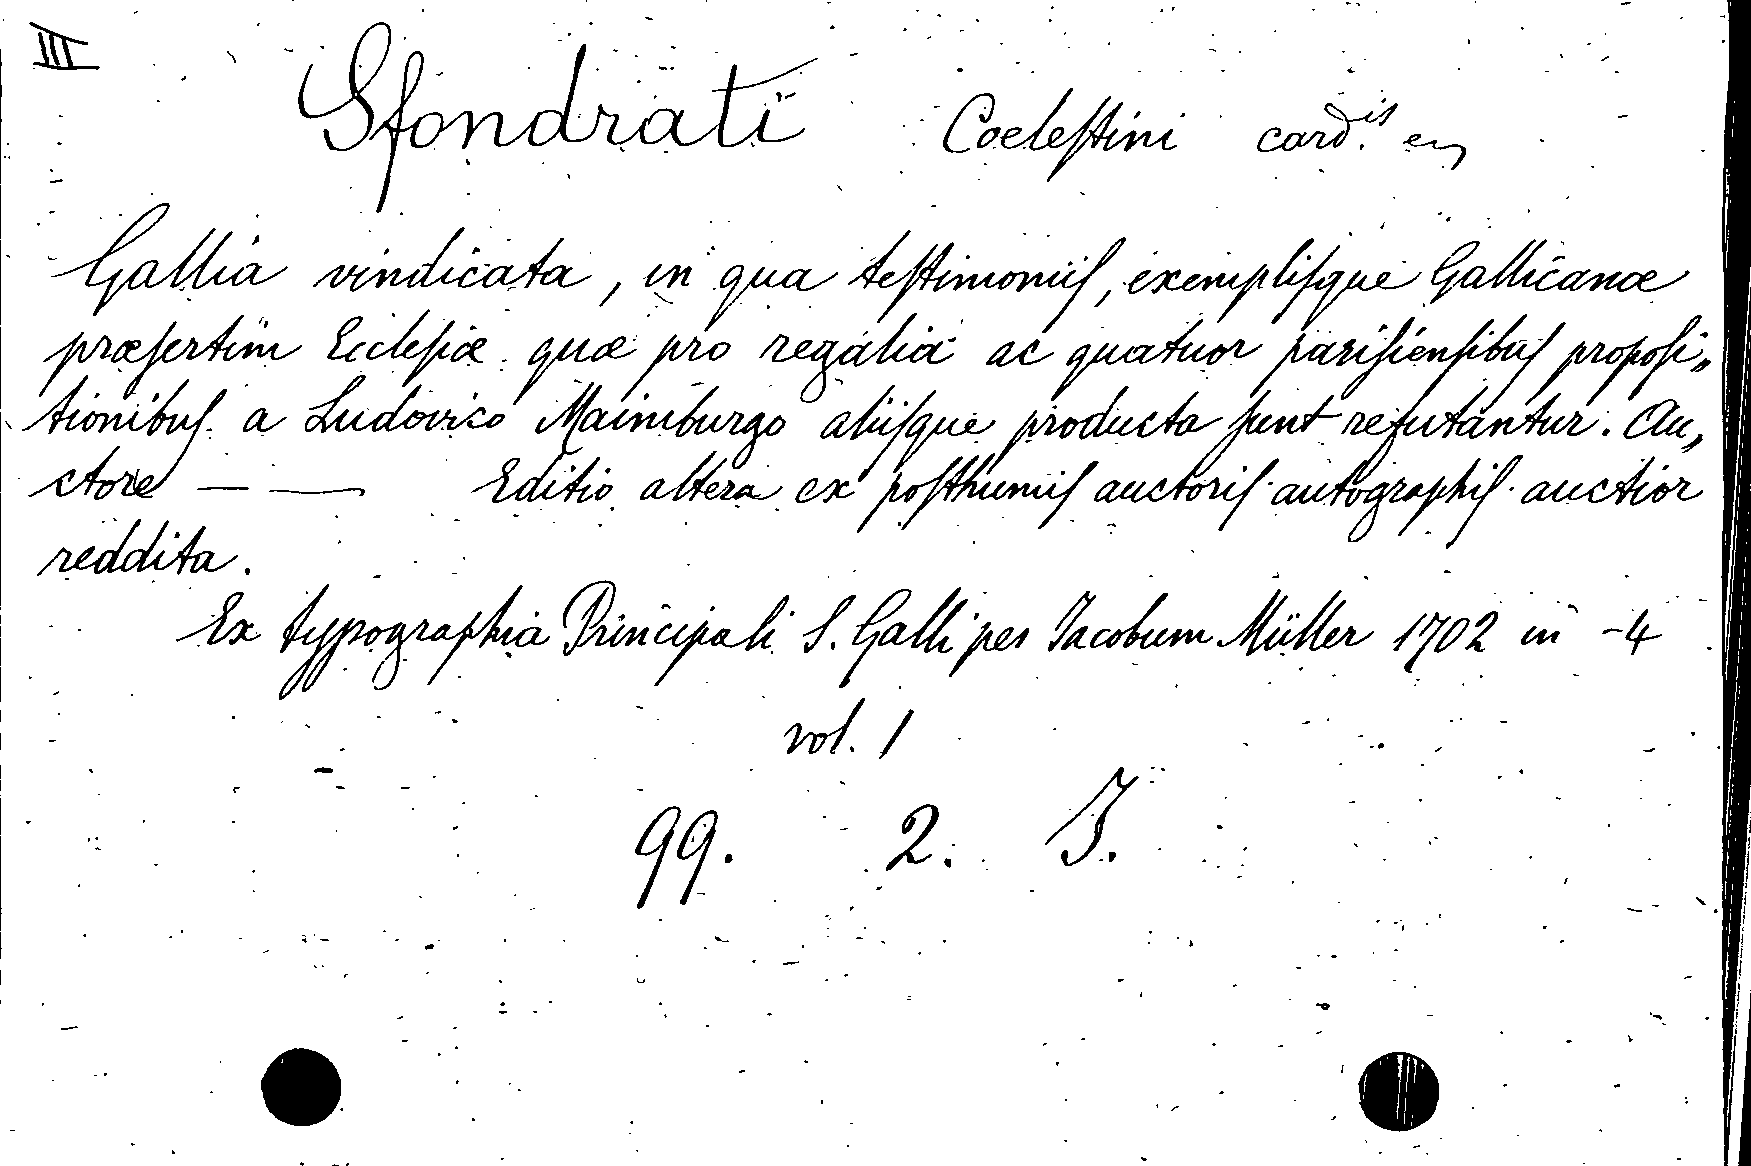 III
Sfondrati Coeleſtini card.is
Gallia vindicata, in qua teſtimoniiſ, exempliſque Gallicanæ
præſertim Eccleſiæ quæ pro regalia ac quatuor pariſienſibuſ propoſi„
tionibuſ a Ludovico Maimburgo aliiſque producta ſunt refutantur. Au„
ctore — — Editio altera ex poſthumiſ auctoriſ autographiſ auctior
reddita.
Ex typographia Principali S. Galli per Jacobum Müller 1702 in -4
vol. 1
99. 2. J.